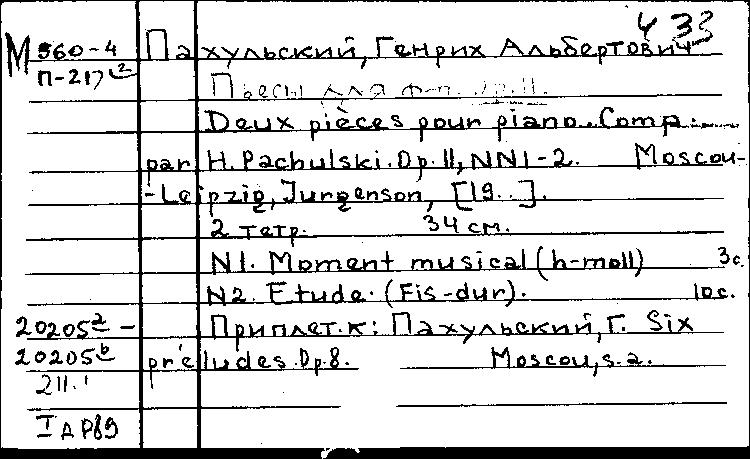 433
М 960-4 Пахульский, Генрих Альбертович
П-217 Пьесы для ф-п. Op.11.
Deux pièces pour piano. Comp.
par H. Pachulski. Op. 11, NN1-2. Moscou-
-Leipzig, Jurgenson, [19..].
2 тетр. 34 см.
N1. Moment musical (h-moll) 3с.
N2. Etude. (Fis-dur). 10с.
20205a - Приплет. к: Пахульский, Г. Six
20205b préludes. Op. 8. Moscou, s.a.
211.
I д Р89